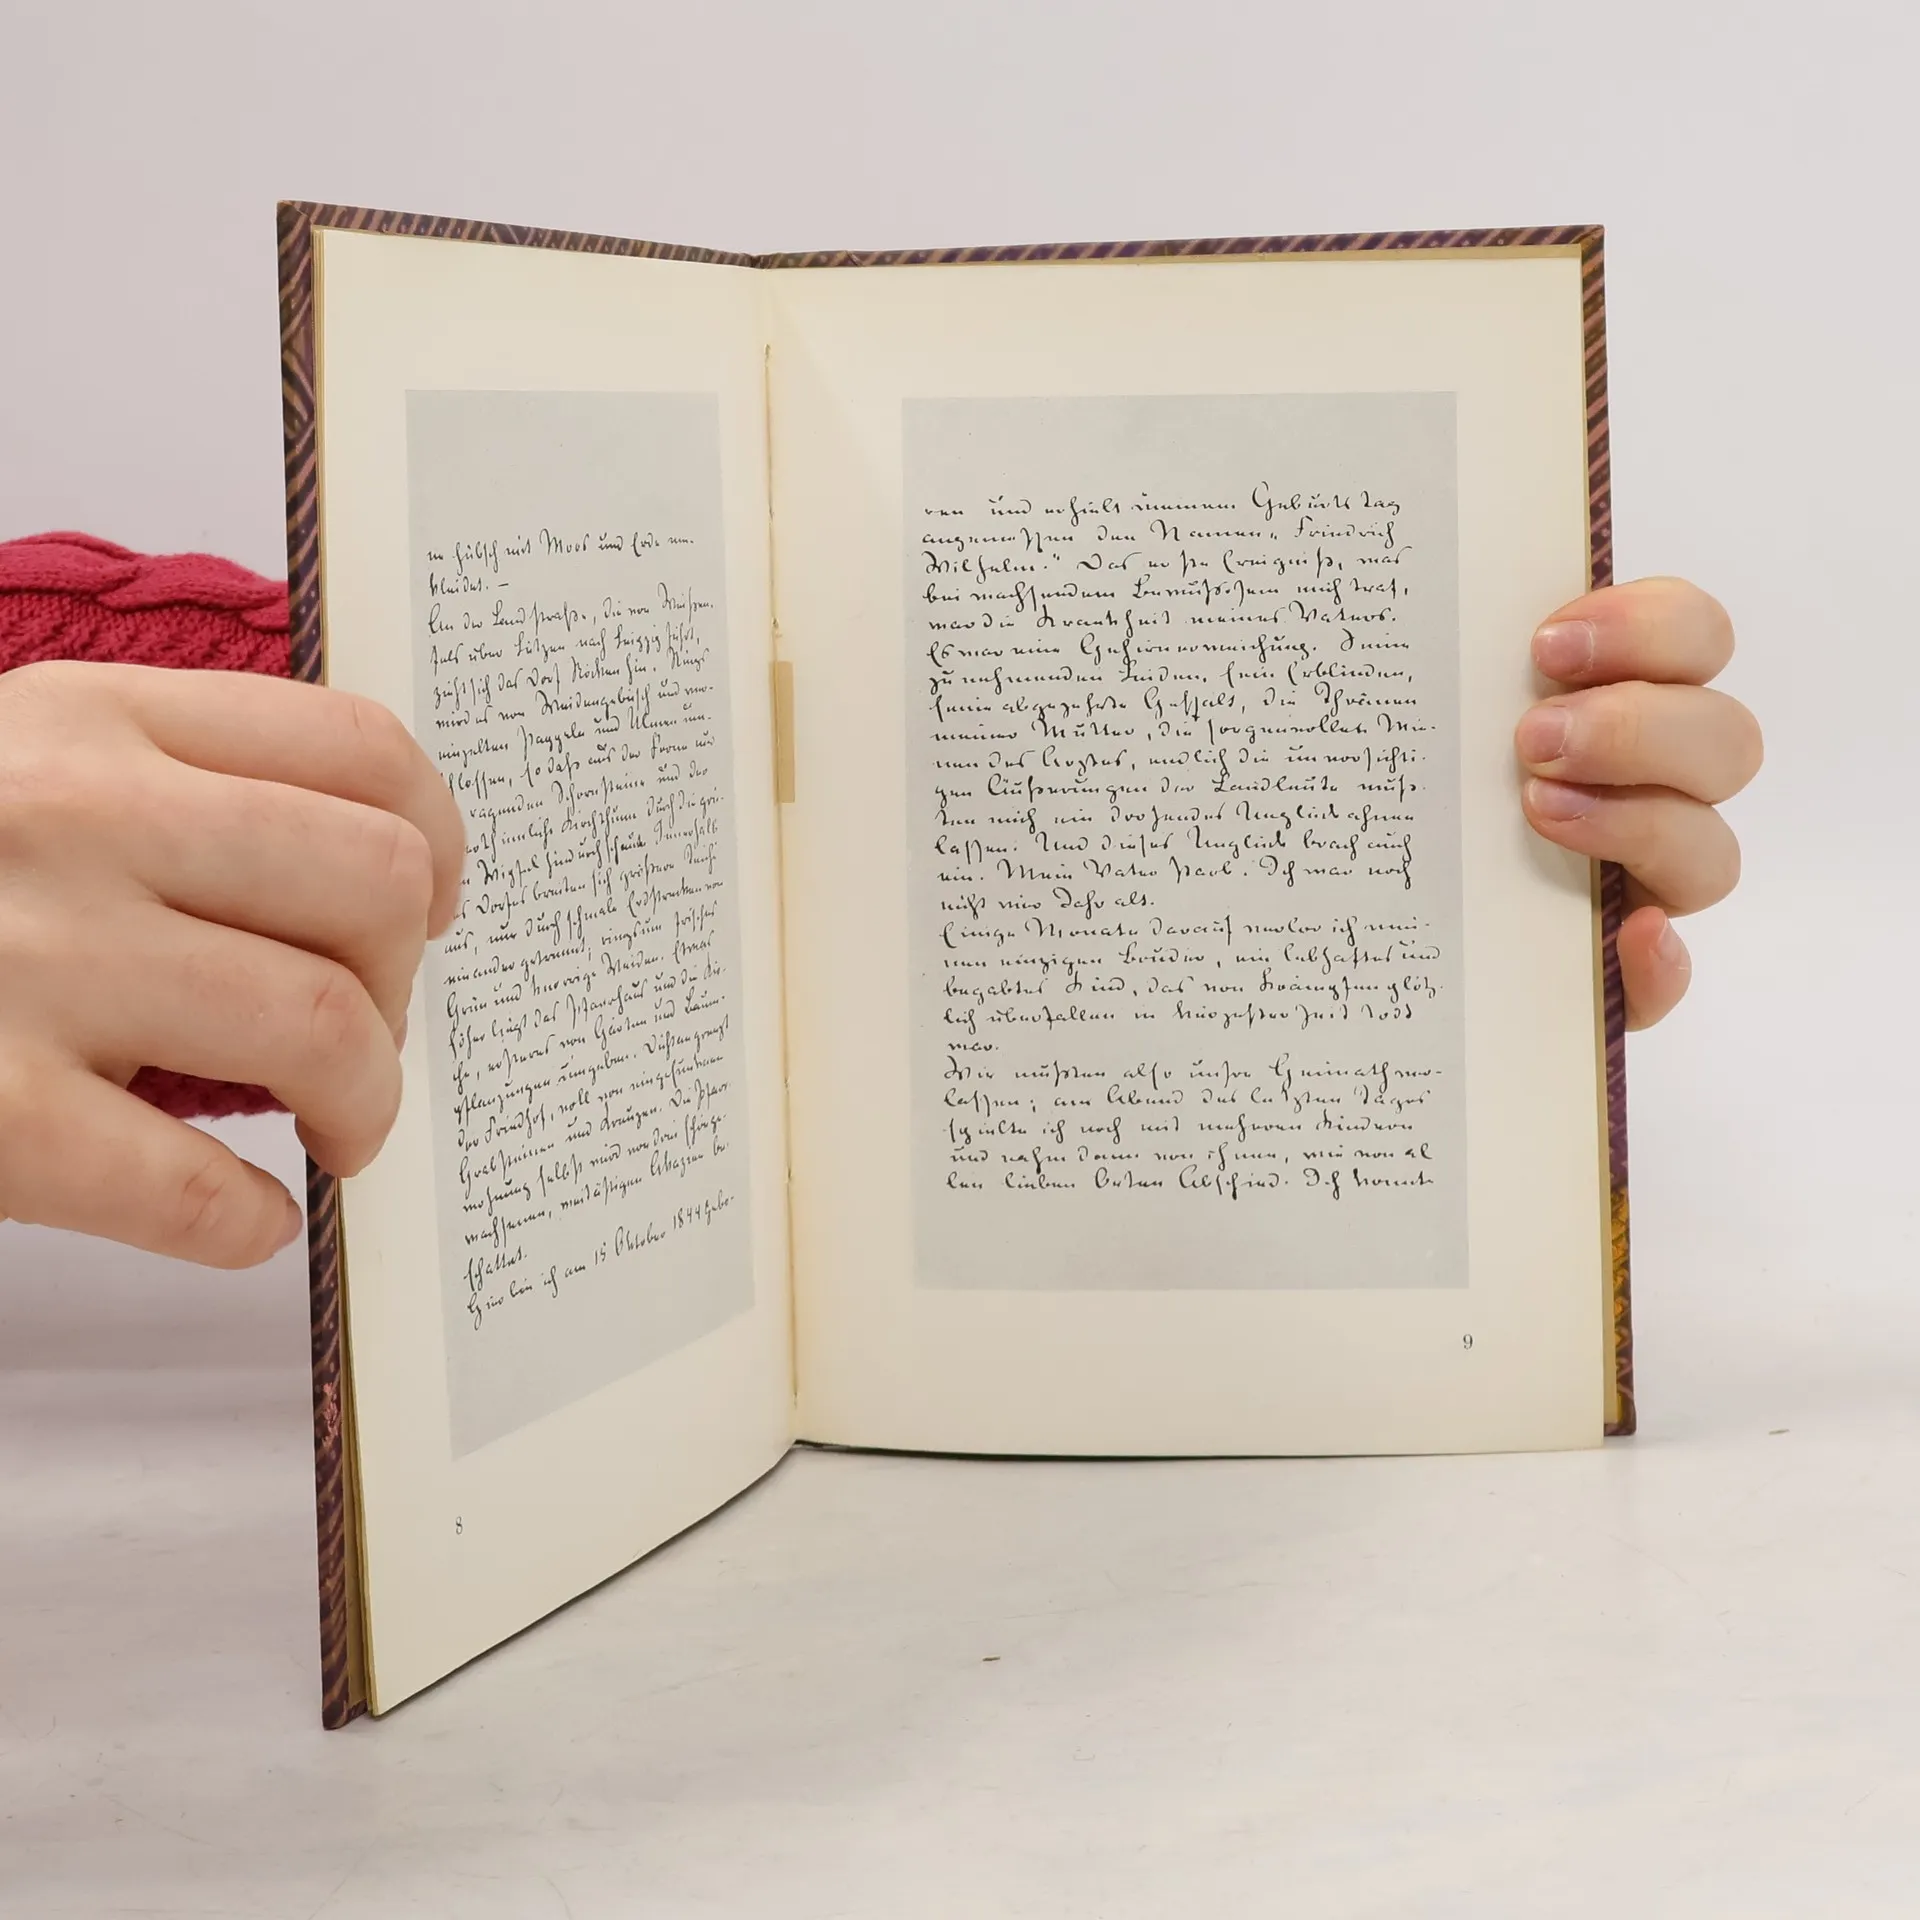 ne hübsch mit Moos und Erde um-
kleidet. —
An der Landstraße, die von Weißen-
fels über Lützen nach Leipzig führt,
zieht sich das Dorf Röcken hin. Rings
wird es von Weidengebüsch und ver-
einzelten Pappeln und Ulmen um-
schlossen, so daß aus der Ferne nur
ragenden Schornsteine und der
alterthümliche Kirchthurm durch die grü-
n Wipfel hindurchschaun. Innerhalb
es Dorfes breiten sich größere Teiche
aus, nur durch schmale Erdstrecken von
einander getrennt; ringsum frisches
Grün und knorrige Weiden. Etwas
höher liegt das Pfarrhaus und die Kir-
che, ersteres von Gärten und Baum-
pflanzungen umgeben. Dicht angrenzt
der Friedhof, voll von eingesunkenen
Grabsteinen und Kreuzen. Die Pfarr-
wohnung selbst wird von drei schönge-
wachsenen, weitästigen Akazien be-
schattet.
Hier bin ich am 15 Oktober 1844 gebo-
8
ren und erhielt meinem Geburtstag
angemessen den Namen „Friedrich
Wilhelm." Das erste Ereigniß, was
bei wachsendem Bewußtsein mich traf,
war die Krankheit meines Vaters.
Es war eine Gehirnerweichung. Seine
zunehmenden Leiden, sein Erblinden,
seine abgezehrte Gestalt, die Thränen
meiner Mutter, die sorgenvollen Mie-
nen des Arztes, endlich die unvorsichti-
gen Äußerungen der Landleute muß-
ten mich ein drohendes Unglück ahnen
lassen. Und dieses Unglück brach auch
ein. Mein Vater starb. Ich war noch
nicht vier Jahr alt.
Einige Monate darauf verlor ich mei-
nen einzigen Bruder, ein lebhaftes und
begabtes Kind, das von Krämpfen plötz-
lich überfallen in kürzester Zeit todt
war.
Wir mußten also unsre Heimath ver-
lassen; am Abend des letzten Tages
spielte ich noch mit mehreren Kindern
und nahm dann von ihnen, wie von al
len lieben Orten Abschied. Ich konnte
9